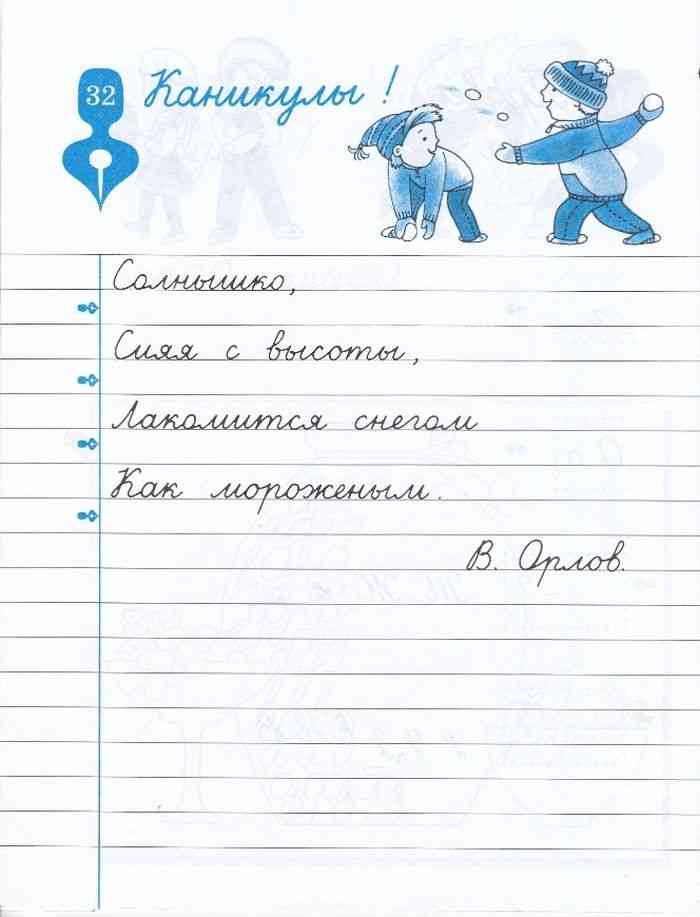 32 Каникулы!
Солнышко,
Сияя с высоты,
Лакомится снегом
Как мороженым.
В. Орлов.